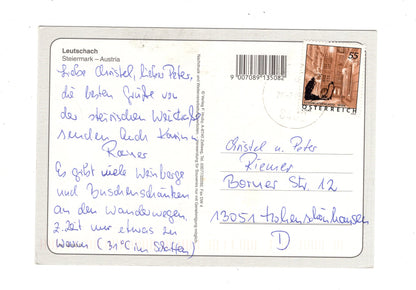 Leutschach
Steiermark – Austria
Liebe Christel, lieber Peter,
die besten Grüße von
der steirischen Weinstraße
senden Euch Karin u.
Rainer
Es gibt viele Weinberge
und Buschenschänken
an den Wanderwegen.
Z.Zt. nur etwas zu
warm (31°C im Schatten)
9 007089 135082
55
ÖSTERREICH
Christel u. Peter
Riemer
Borner Str. 12
13051 Hohenschönhausen
D